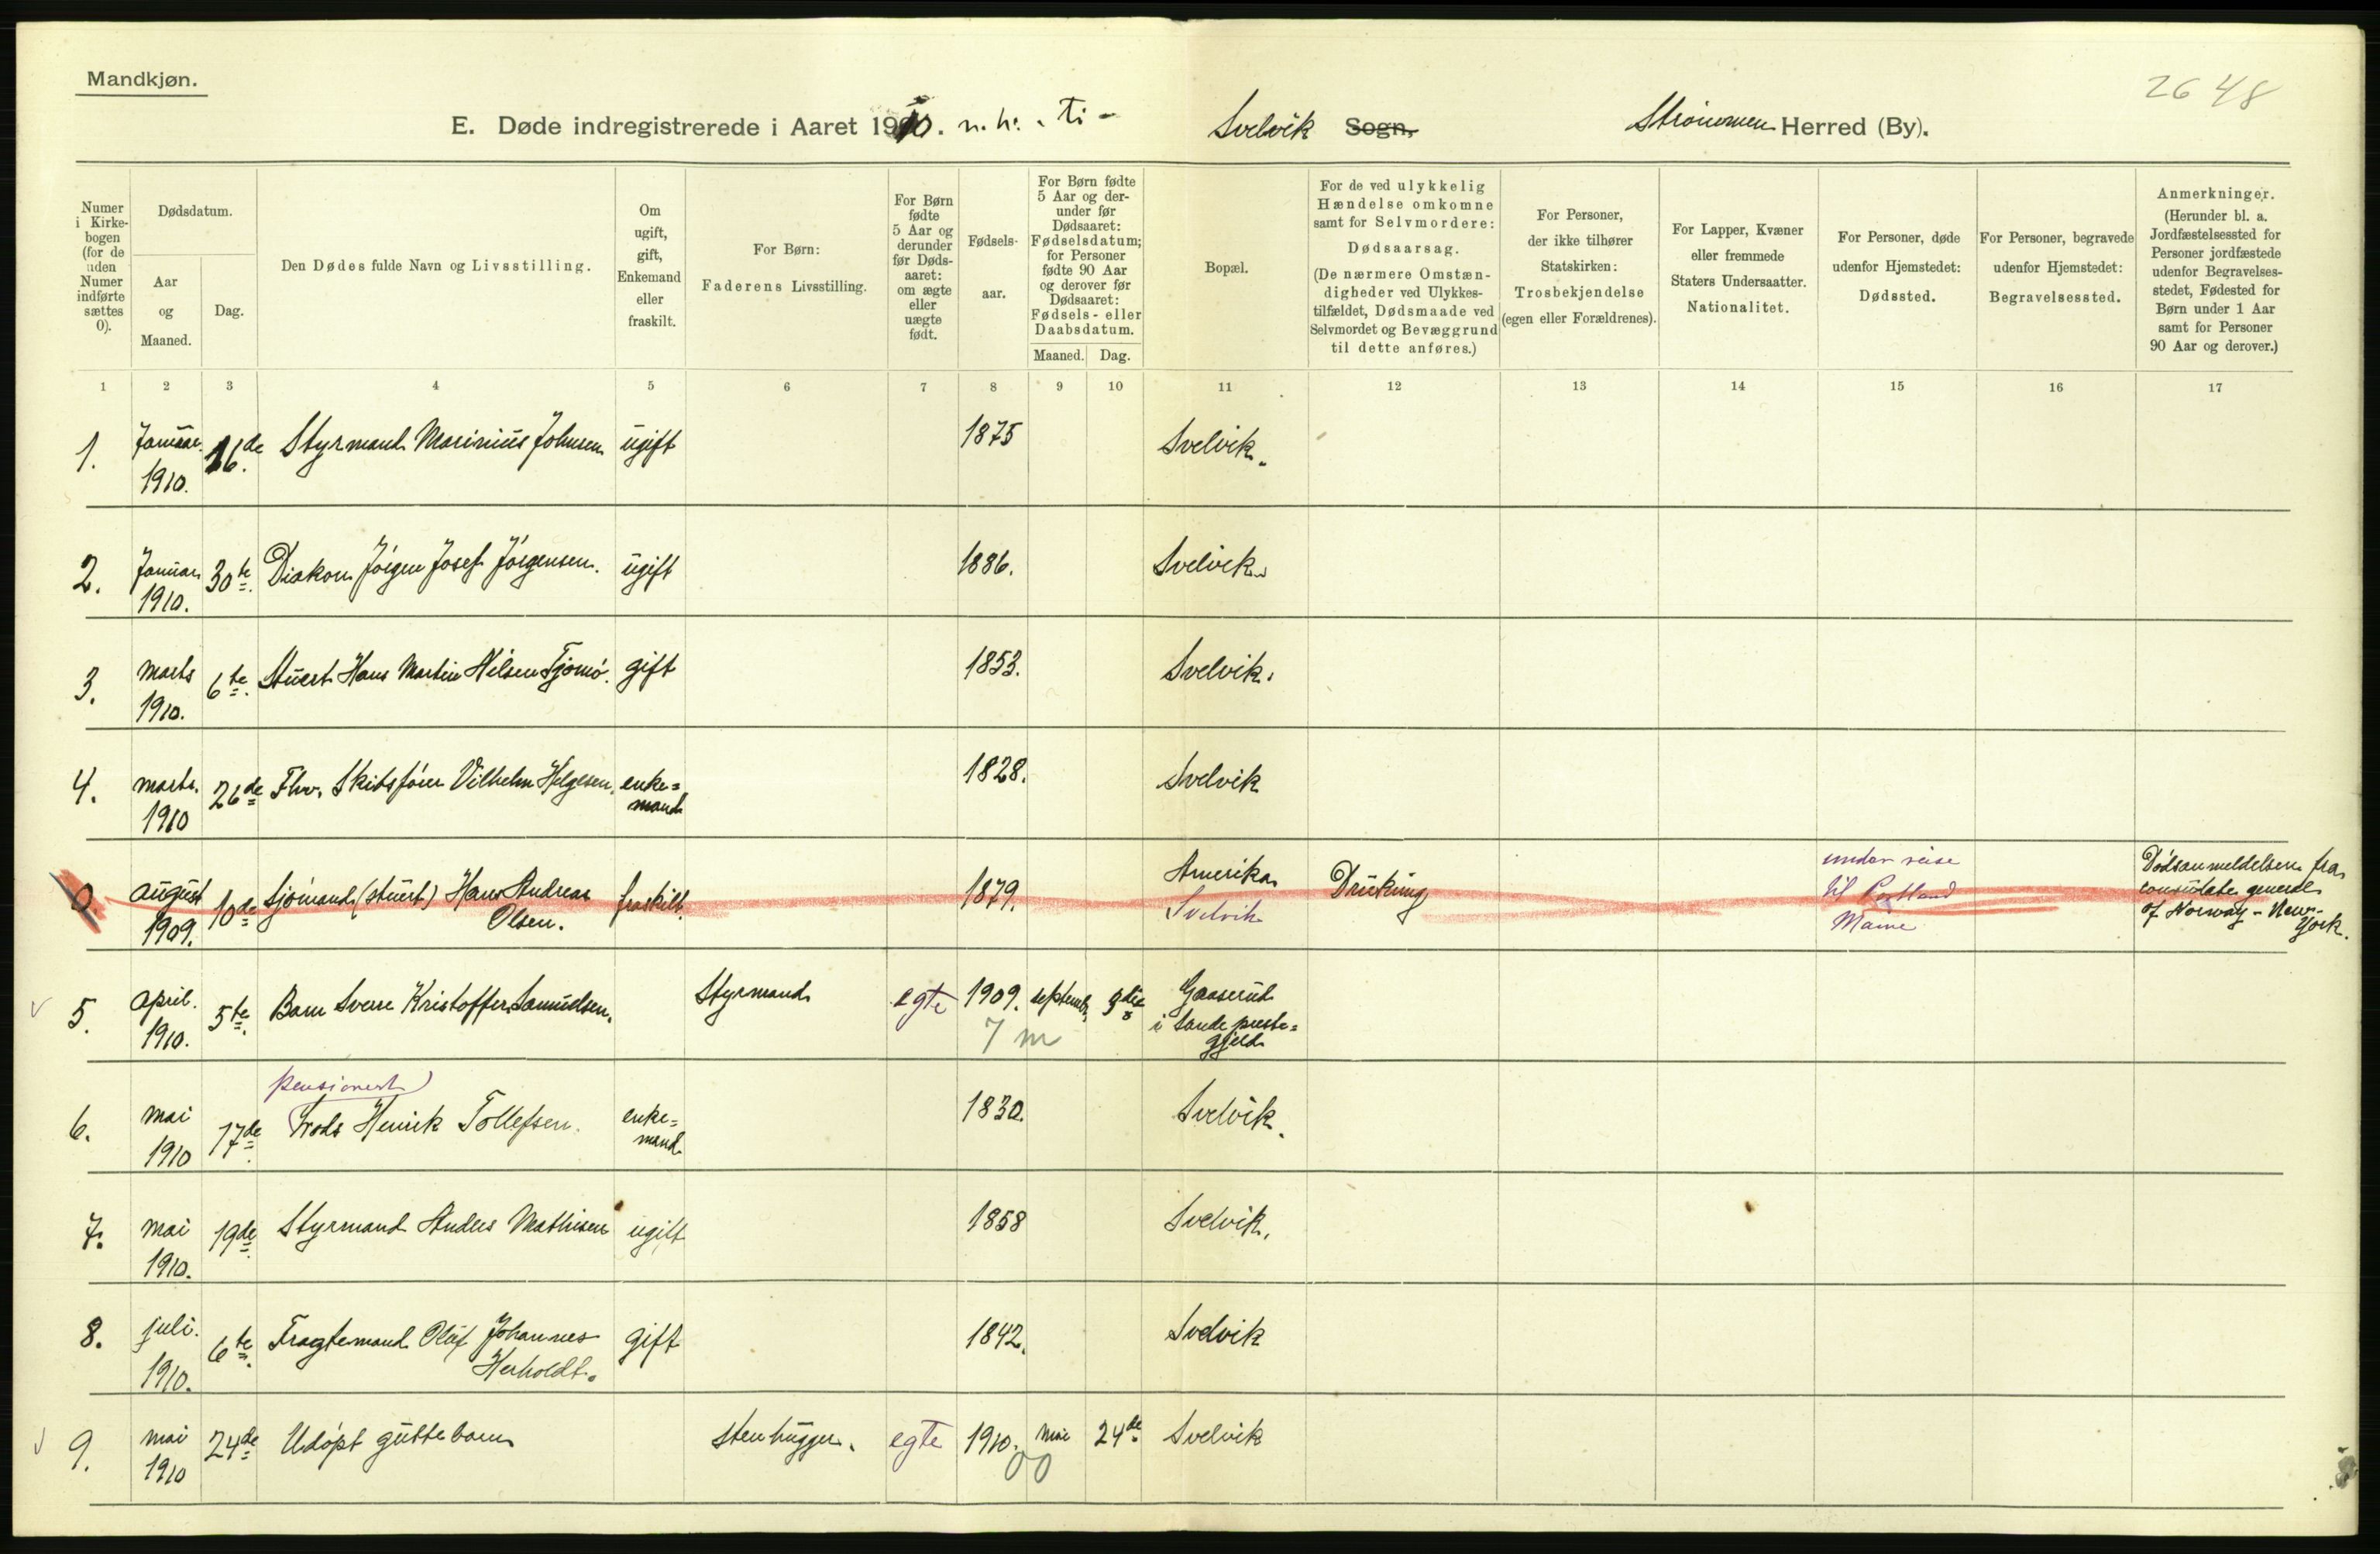 Mandkjøn.
2648
E. Døde indregistrerede i Aaret 1910. n. h. - ti - Svelvik Sogn. Strömmen Herred (By).
Numer i Kirkebogen (for de uden Numer indførte sættes 0).
Dødsdatum.
Aar og Maaned.
Dag.
Den Dødes fulde Navn og Livsstilling.
Om ugift, gift, Enkemand eller fraskilt.
For Børn: Faderens Livsstilling.
For Børn fødte 5 Aar og derunder før Dødsaaret: om ægte eller uægte født.
Fødselsaar.
For Børn fødte 5 Aar og derunder før Dødsaaret: Fødselsdatum; for Personer fødte 90 Aar og derover før Dødsaaret: Fødsels- eller Daabsdatum.
Maaned. Dag.
Bopæl.
For de ved ulykkelig Hændelse omkomne samt for Selvmordere: Dødsaarsag. (De nærmere Omstændigheder ved Ulykkestilfældet, Dødsmaade ved Selvmordet og Bevæggrund til dette anføres.)
For Personer, der ikke tilhører Statskirken: Trosbekjendelse (egen eller Forældrenes).
For Lapper, Kvæner eller fremmede Staters Undersaatter. Nationalitet.
For Personer, døde udenfor Hjemstedet: Dødssted.
For Personer, begravede udenfor Hjemstedet: Begravelsessted.
Anmerkninger. (Herunder bl. a. Jordfæstelsessted for Personer jordfæstede udenfor Begravelsesstedet, Fødested for Børn under 1 Aar samt for Personer 90 Aar og derover.)
1 2 3 4 5 6 7 8 9 10 11 12 13 14 15 16 17
1. Januar 1910. 16de Styrmand Marinius Johnsen ugift 1875 Svelvik.
2. Januar 1910. 30te Diakon Jörgen Josef Jörgensen. ugift 1886. Svelvik
3. Marts 1910. 6te Stuert Hans Martin Nilsen Tjömö. gift 1853. Svelvik.
4. marts. 1910 26de Fhv. Skibsförer Vilhelm Helgesen. enkemand 1828. Svelvik
0 august 1909. 10de Sjömand (stuert) Hans Andreas Olsen. fraskilt. 1879. Amerika Svelvik Drukning under reise til Portland Maine Dödsanmeldelsen fra consulate general of Norway - New-York.
5. april. 1910. 5te Barn Sverre Kristoffer Samuelsen. Styrmand egte 1909. septemb. 9de Gaaserud i Sande prestegjeld
7 m
pensionert
6. mai 1910 17de Frods Henrik Tollefsen. enkemand 1830. Svelvik.
7. mai 1910. 19de Styrmand Anders Mathisen ugift 1858 Svelvik.
8. juli. 1910. 6te Fragtemand Oluf Johannes Herholdt. gift 1842. Svelvik
9. mai 1910 24de Udöpt guttebarn Stenhugger. egte 1910. mai 24de Svelvik
00